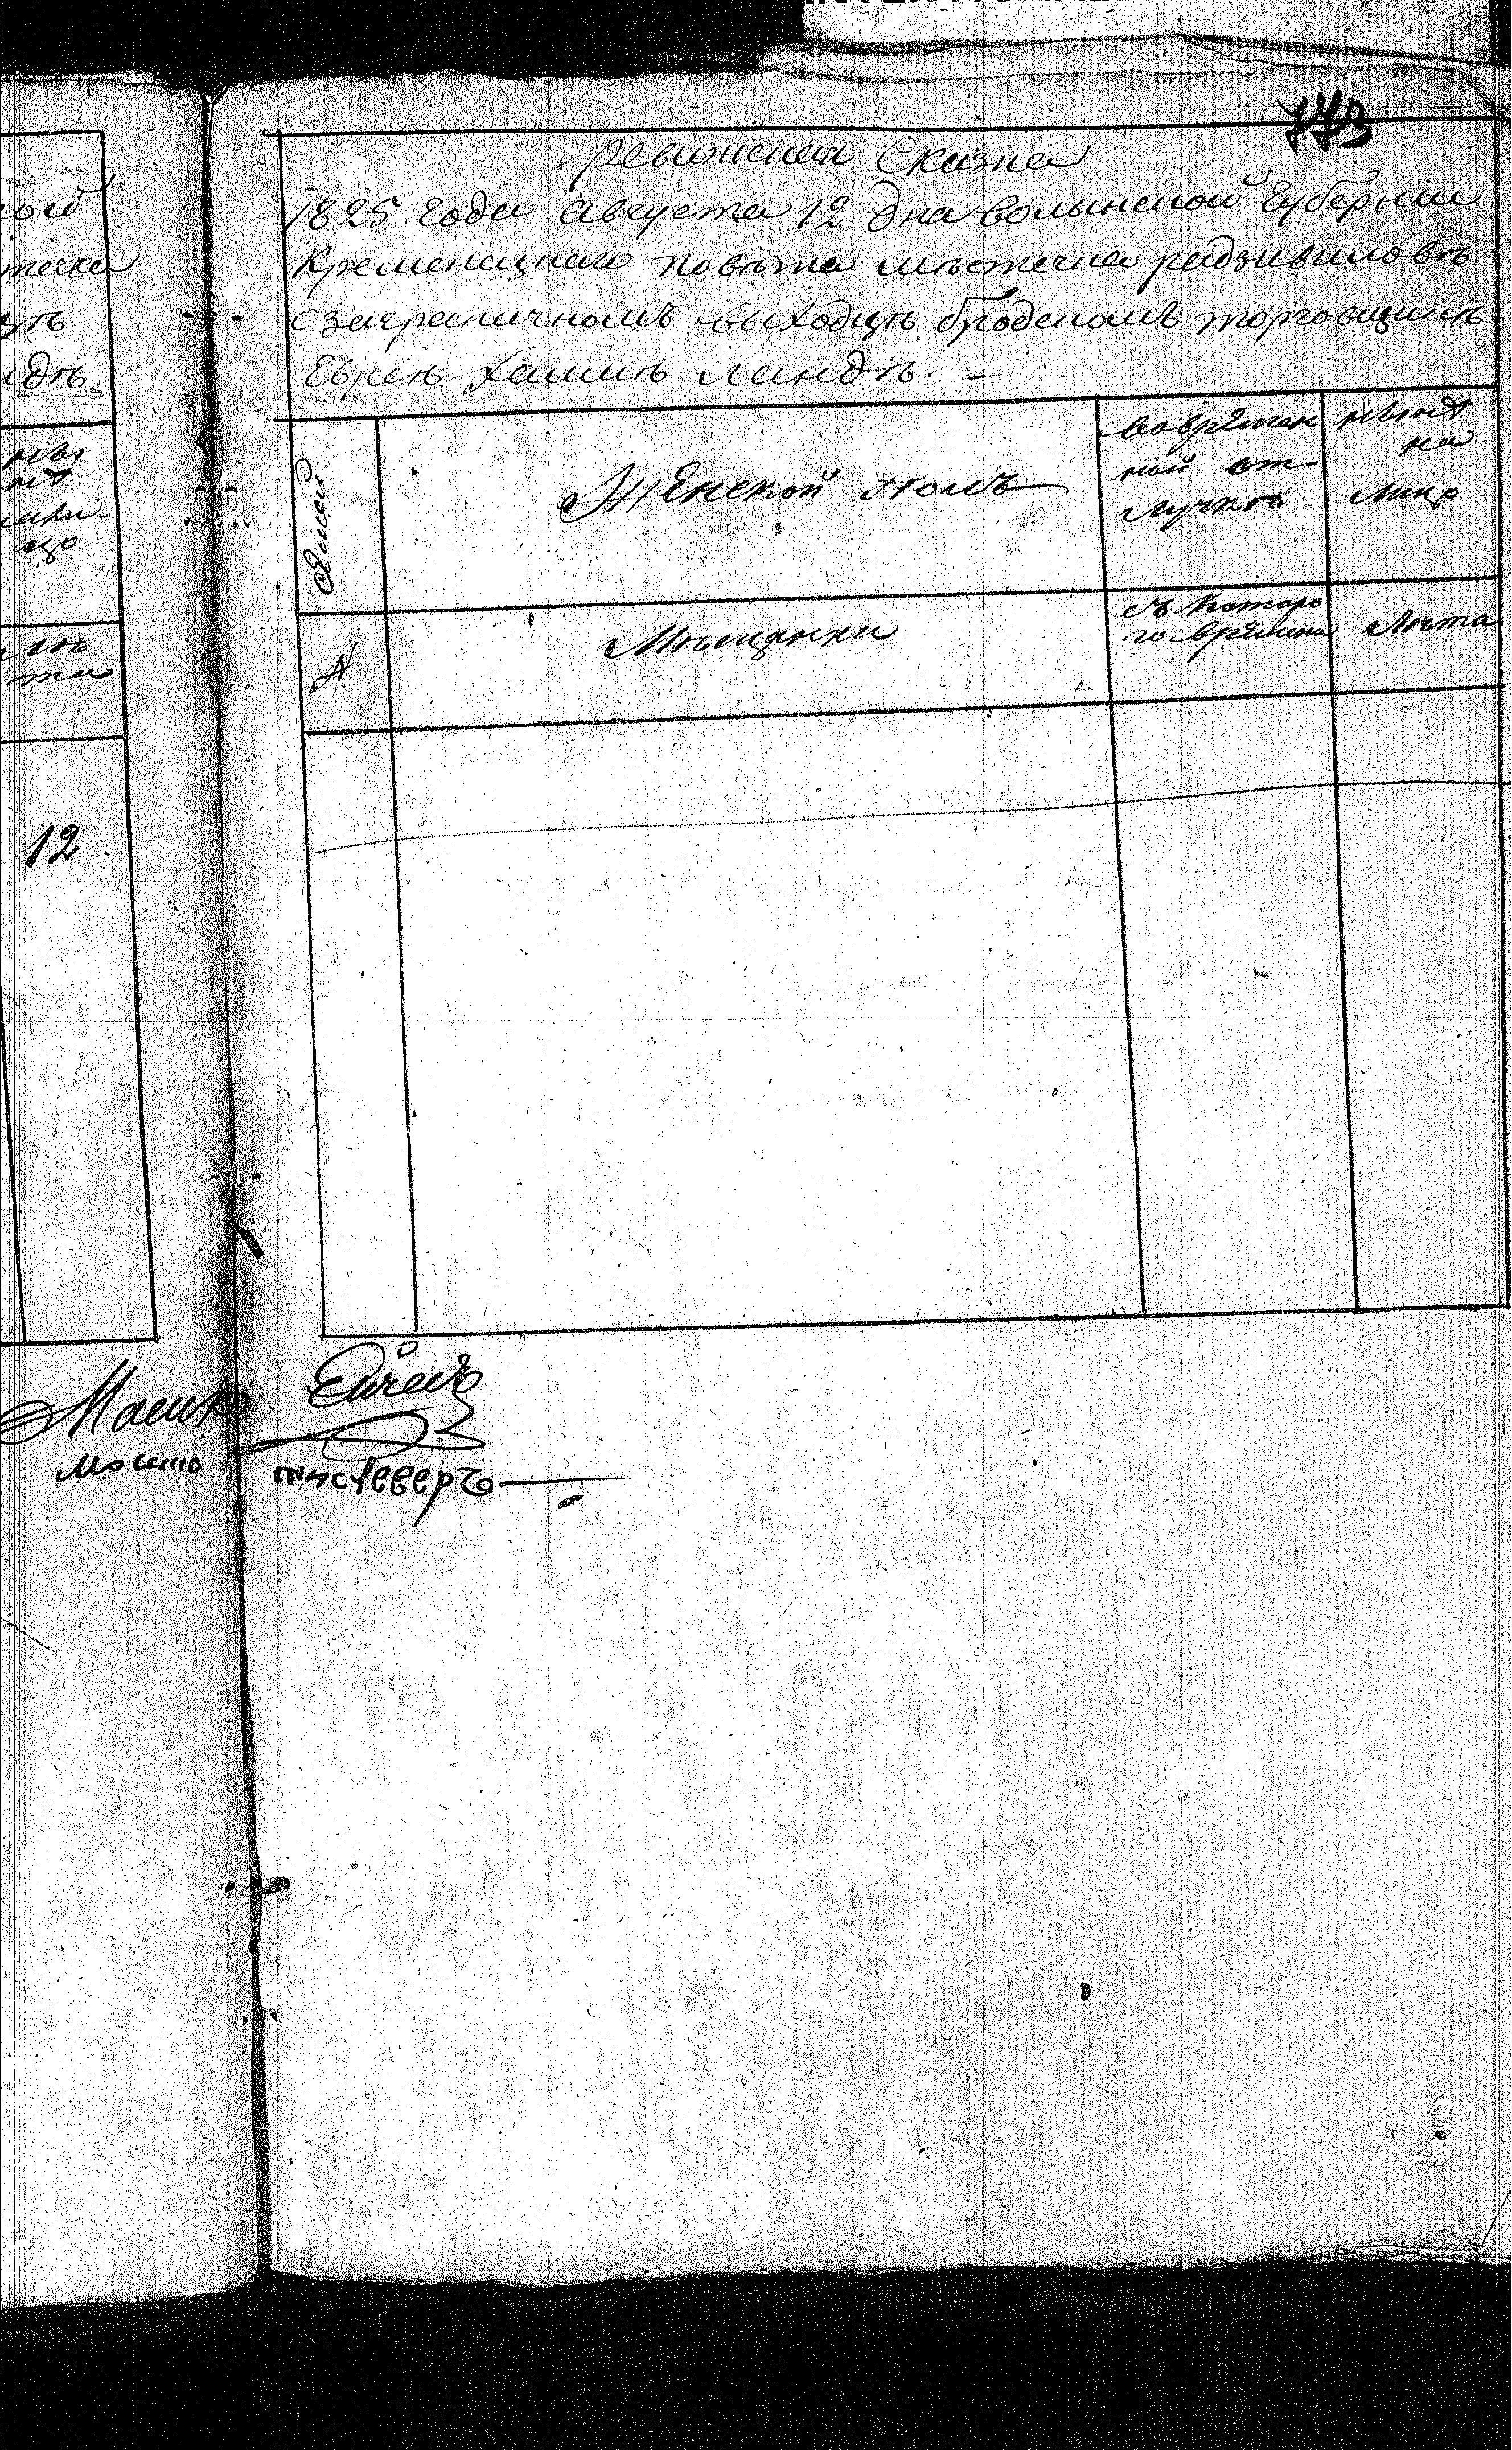 773
ревижская Сказка
1825 года августа 12 дна волынской Губернии
Кременецкаго повѣта мѣстечка радзивиловѣ
о заграничномъ выходцѣ бродскомъ торговщикѣ
Евреѣ Хаимѣ ландѣ. —
Женской полъ
во времен
ной от-
лучкѣ
нынѣ
на
лицо
N
Мѣщанки
съ котаро
го времени
лѣта
ной
течка
дѣ
ны
нѣ
лѣ
та
12
Мошко